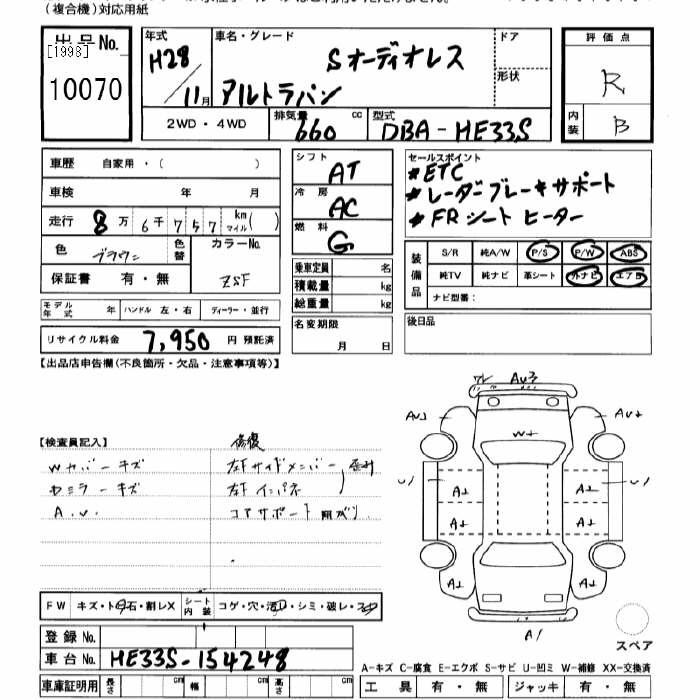 (複合機)対応用紙
出品No. [1993] 10070
年式 H28 / 11月
車名・グレード Sオーディオレス
アルトラパン
ドア
形状
評価点 R
内装 B
2WD・4WD 排気量 660 cc 型式 DBA-HE33S
車歴 自家用・( )
車検 年 月
走行 8万6千757 km マイル( )
色 ブラウン 色替 カラーNo. ZSF
保証書 有・無
モデル年式 年 ハンドル 左・右 ディーラー・並行
リサイクル料金 7,950 円 預託済
シフト AT
冷房 AC
燃料 G
乗車定員 名
積載量 kg
総重量 kg
名変期限 月 日
セールスポイント
*ETC
*レーダーブレーキサポート
*FRシートヒーター
装備品 S/R 純A/W P/S P/W ABS
純TV 純ナビ 革シート 外ナビ エアB
ナビ型番:
後日品
【出品店申告欄(不良箇所・欠品・注意事項等)】
【検査員記入】 修復
Wカバーキズ 左Fサイドメンバー
左Fインパネ
A.U. コアサポート
FW キズ・ト石・割レX シート内装 コゲ・穴・汚レ・シミ・破レ・スレ
登録No.
車台No. HE33S-154248
車庫証明用 長さ cm 幅 cm 高さ cm
AU3
AU2
W2
A2
A2
A2
A2
A2
A2
A1
スペア
A-キズ C-腐食 E-エクボ S-サビ U-凹ミ W-補修 XX-交換済
工具 有・無 ジャッキ 有・無